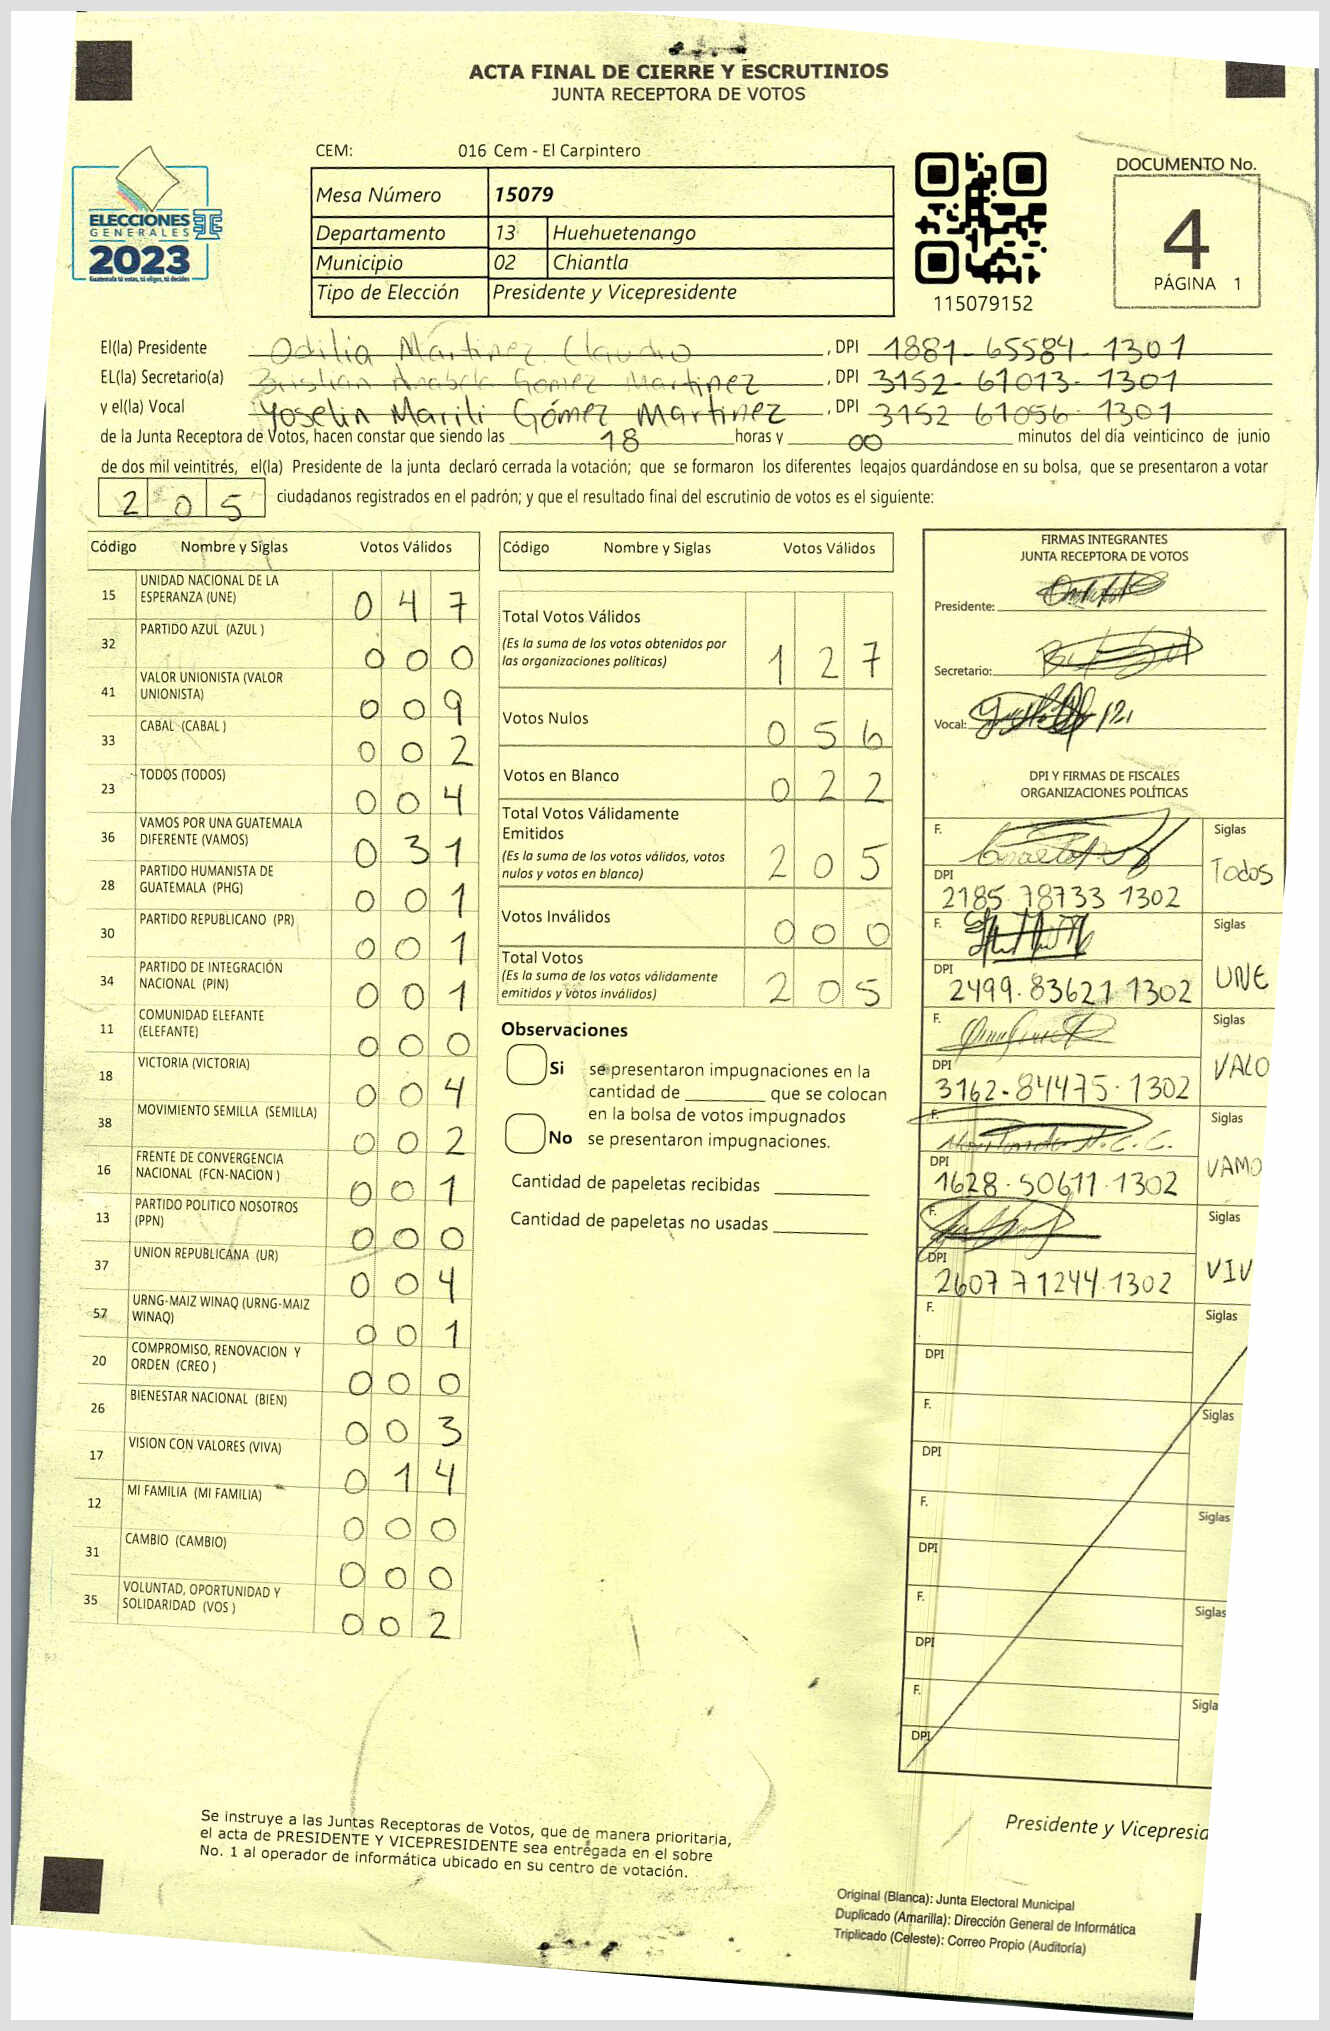 ACTA FINAL DE CIERRE Y ESCRUTINIOS
JUNTA RECEPTORA DE VOTOS
CEM: 016 Cem - El Carpintero
ELECCIONES
GENERALES
2023
Guatemala tú votas, tú eliges, tú decides
Mesa Número 15079
Departamento 13 Huehuetenango
Municipio 02 Chiantla
Tipo de Elección Presidente y Vicepresidente
115079152
DOCUMENTO No.
4
PÁGINA 1
El(la) Presidente Odilia Martinez Claudio, DPI 1881-65584-1301
EL(la) Secretario(a) Gomez Martinez, DPI 3152-61013-1301
y el(la) Vocal Yoselin Marili Gómez Martinez, DPI 3152 61056-1301
de la Junta Receptora de Votos, hacen constar que siendo las 18 horas y 00 minutos del día veinticinco de junio
de dos mil veintitrés, el(la) Presidente de la junta declaró cerrada la votación; que se formaron los diferentes legajos guardándose en su bolsa, que se presentaron a votar
205 ciudadanos registrados en el padrón; y que el resultado final del escrutinio de votos es el siguiente:
Código Nombre y Siglas Votos Válidos
15 UNIDAD NACIONAL DE LA
ESPERANZA (UNE) 0 4 7
32 PARTIDO AZUL (AZUL ) 0 0 0
41 VALOR UNIONISTA (VALOR
UNIONISTA) 0 0 9
33 CABAL (CABAL ) 0 0 2
23 TODOS (TODOS) 0 0 4
36 VAMOS POR UNA GUATEMALA
DIFERENTE (VAMOS) 0 3 1
28 PARTIDO HUMANISTA DE
GUATEMALA (PHG) 0 0 1
30 PARTIDO REPUBLICANO (PR) 0 0 1
34 PARTIDO DE INTEGRACIÓN
NACIONAL (PIN) 0 0 1
11 COMUNIDAD ELEFANTE
(ELEFANTE) 0 0 0
18 VICTORIA (VICTORIA) 0 0 4
38 MOVIMIENTO SEMILLA (SEMILLA) 0 0 2
16 FRENTE DE CONVERGENCIA
NACIONAL (FCN-NACION ) 0 0 1
13 PARTIDO POLITICO NOSOTROS
(PPN) 0 0 0
37 UNION REPUBLICANA (UR) 0 0 4
57 URNG-MAIZ WINAQ (URNG-MAIZ
WINAQ) 0 0 1
20 COMPROMISO, RENOVACION Y
ORDEN (CREO ) 0 0 0
26 BIENESTAR NACIONAL (BIEN) 0 0 3
17 VISION CON VALORES (VIVA) 0 1 4
12 MI FAMILIA (MI FAMILIA) 0 0 0
31 CAMBIO (CAMBIO) 0 0 0
35 VOLUNTAD, OPORTUNIDAD Y
SOLIDARIDAD (VOS ) 0 0 2
Código Nombre y Siglas Votos Válidos
Total Votos Válidos
(Es la suma de los votos obtenidos por
las organizaciones políticas) 1 2 7
Votos Nulos 0 5 6
Votos en Blanco 0 2 2
Total Votos Válidamente
Emitidos
(Es la suma de los votos válidos, votos
nulos y votos en blanco) 2 0 5
Votos Inválidos 0 0 0
Total Votos
(Es la suma de los votos válidamente
emitidos y votos inválidos) 2 0 5
Observaciones
Si se presentaron impugnaciones en la
cantidad de ________ que se colocan
en la bolsa de votos impugnados
No se presentaron impugnaciones.
Cantidad de papeletas recibidas
Cantidad de papeletas no usadas
FIRMAS INTEGRANTES
JUNTA RECEPTORA DE VOTOS
Presidente:
Secretario:
Vocal:
DPI Y FIRMAS DE FISCALES
ORGANIZACIONES POLÍTICAS
F. Siglas
Todos
DPI
2185 78733 1302
F. Siglas
UNE
DPI
2499-83621 1302
F. Siglas
VALO
DPI
3162-84475-1302
F. Siglas
VAMO
DPI
1628-50611-1302
F. Siglas
VIV
DPI
2607 71244-1302
F. Siglas
DPI
F. Siglas
DPI
F. Siglas
DPI
F. Siglas
DPI
F. Sigla
DPI
Se instruye a las Juntas Receptoras de Votos, que de manera prioritaria,
el acta de PRESIDENTE Y VICEPRESIDENTE sea entregada en el sobre
No. 1 al operador de informática ubicado en su centro de votación.
Presidente y Vicepresid
Original (Blanca): Junta Electoral Municipal
Duplicado (Amarilla): Dirección General de Informática
Triplicado (Celeste): Correo Propio (Auditoría)